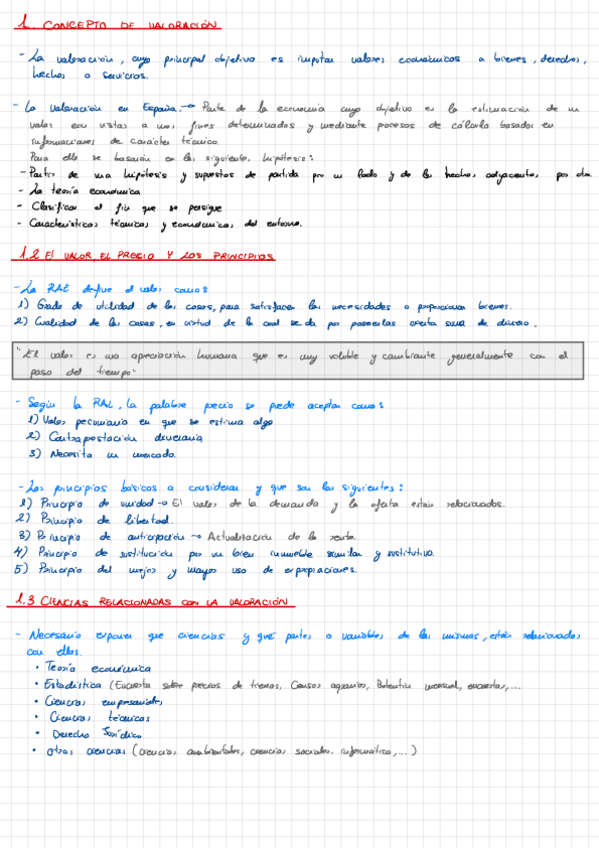 1. CONCEPTO DE VALORACIÓN
- La valoración, cuyo principal objetivo es imputar valores económicos a bienes, derechos,
hechos o servicios.
- La valoración en España → Parte de la economía cuyo objetivo es la estimación de un
valor con vistas a unos fines determinados y mediante procesos de cálculo basados en
informaciones de carácter técnico.
Para ello se basarán en las siguientes hipótesis:
- Partir de una hipótesis y supuestos de partida por un lado y de los hechos adyacentes, por otro.
- La teoría económica
- Clasificar el fin que se persigue
- Características técnicas y económicas del entorno.
1.2 El VALOR, EL PRECIO Y LOS PRINCIPIOS
- La RAE define el valor como:
1) Grado de utilidad de las cosas, para satisfacer las necesidades o proporcionar bienes.
2) Cualidad de las cosas, en virtud de la cual se da por poseerlas cierta suma de dinero.
"El valor es una apreciación humana que es muy voluble y cambiante generalmente con el
paso del tiempo"
- Según la RAE, la palabra precio se puede aceptar como:
1) Valor pecuniario en que se estima algo
2) Contraprestación dineraria
3) Necesita un mercado.
- Los principios básicos a considerar y que son los siguientes:
1) Principio de unidad → El valor de la demanda y la oferta están relacionados.
2) Principio de libertad.
3) Principio de anticipación → Actualización de la renta.
4) Principio de sustitución por un bien inmueble similar y sustitutivo.
5) Principio del mejor y mayor uso de expropiaciones.
1.3 CIENCIAS RELACIONADAS CON LA VALORACIÓN
- Necesario exponer que ciencias y qué partes o variables de las mismas, están relacionadas
con ellas.
• Teoría económica
• Estadística (Encuesta sobre precios de tierras, Censos agrarios, Boletín mensual, encuestas,...
• Ciencias empresariales
• Ciencias técnicas
• Derecho Jurídico
• Otras ciencias (ciencias ambientales, ciencias sociales, informática,...)